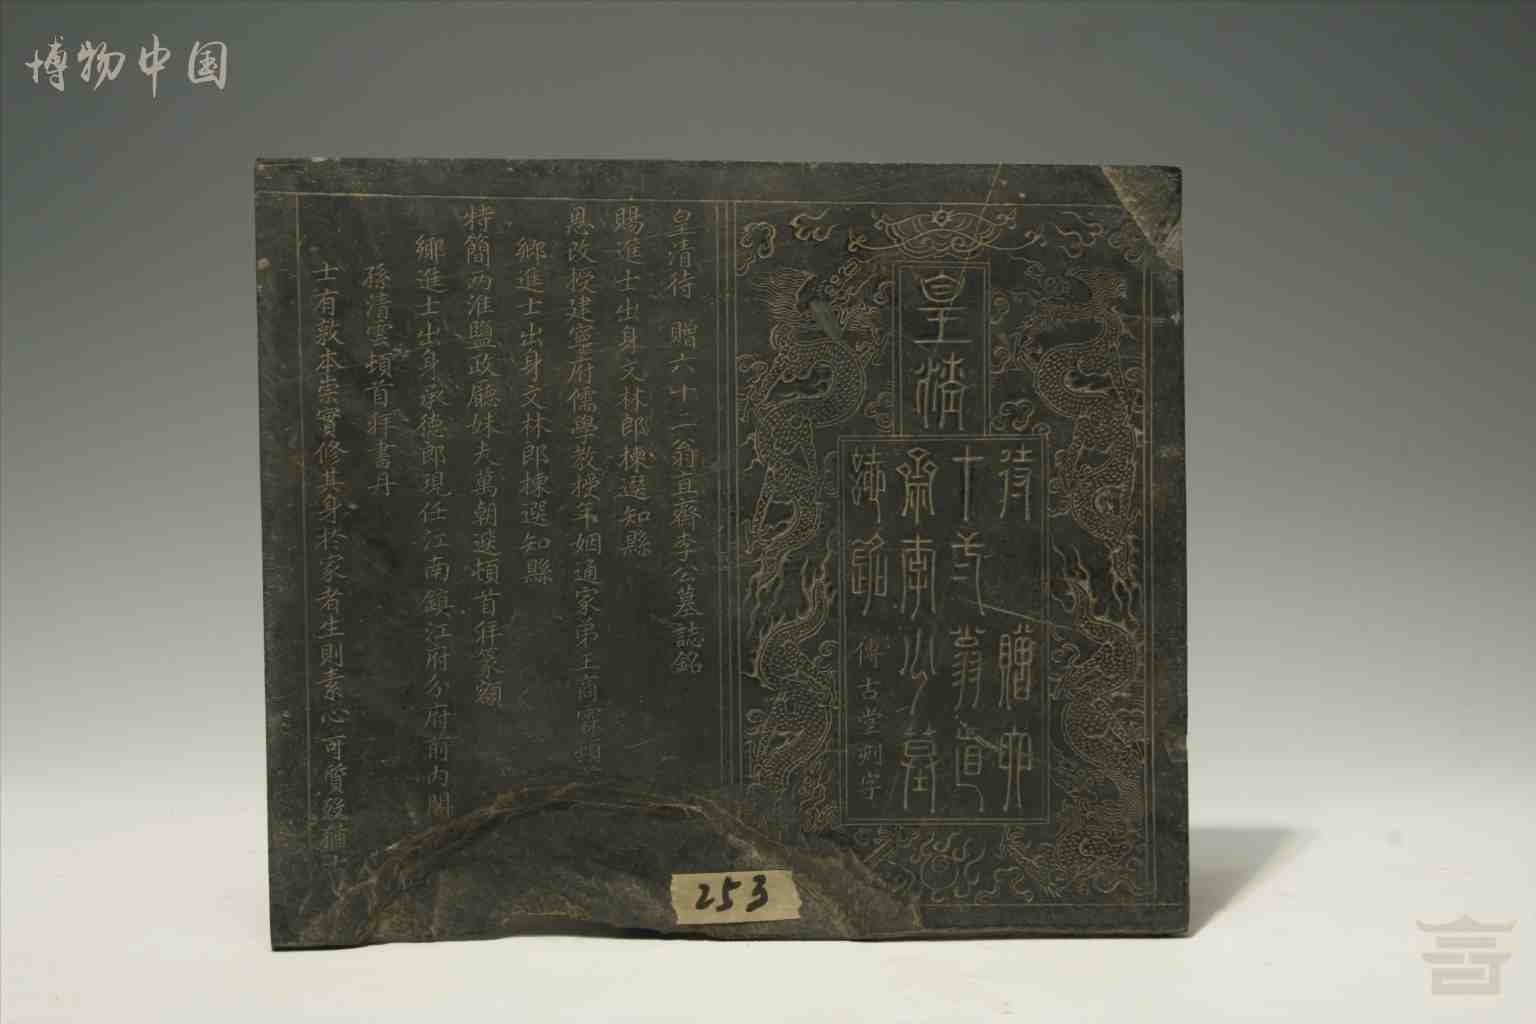 博物中国
皇清
待 贈六
十二翁直
齋李公墓
誌銘
傳古堂刻字
皇清待 贈六十二翁直齋李公墓誌銘
賜進士出身文林郎揀選知縣
恩改授建寧府儒學教授年姻通家弟王商霖頓
鄉進士出身文林郎揀選知縣
特簡兩淮鹽政廳妹夫萬朝遴頓首拜篆額
鄉進士出身承德郎現任江南鎮江府分府前內閣
孫清雲頓首拜書丹
士有敦本崇實修其身於家者生則素心可質歿猶
253